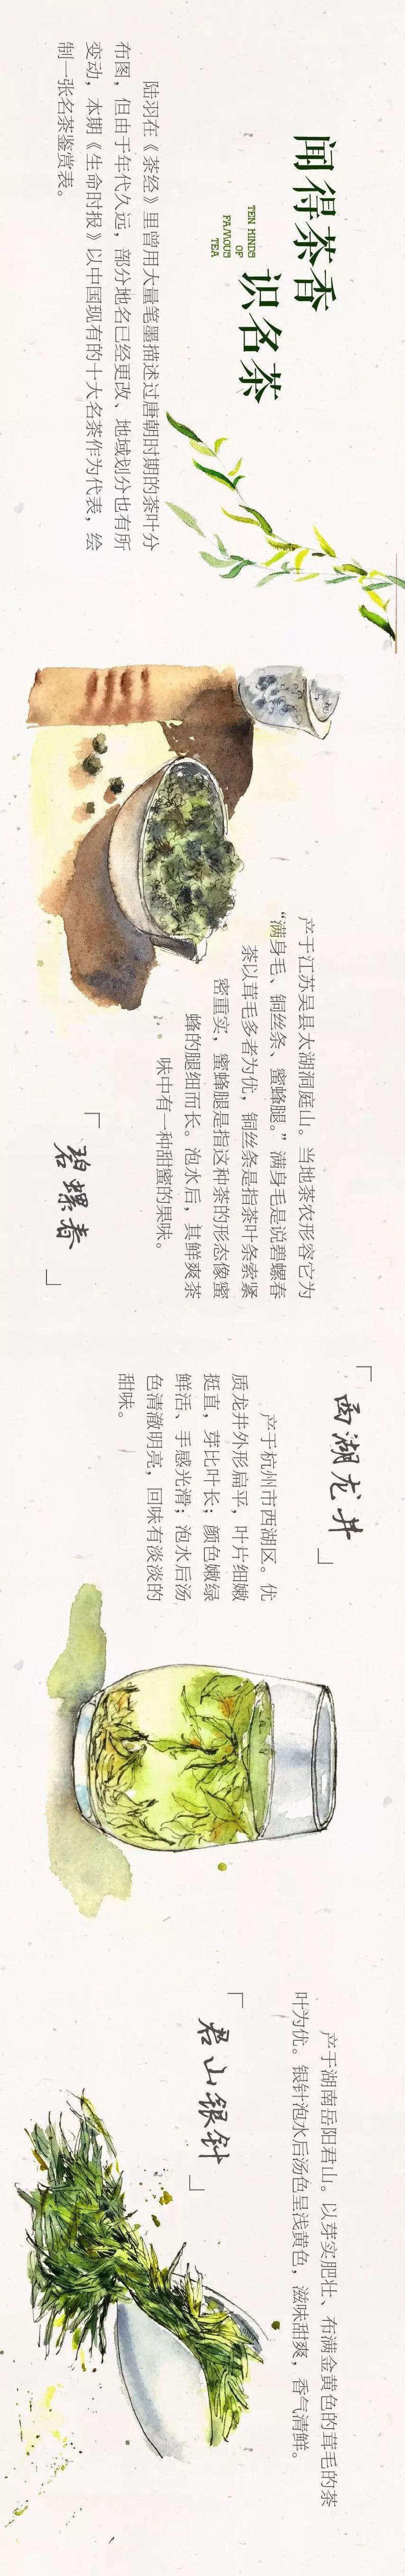 闻得茶香
识名茶
TEN KINDS
OF
FAMOUS
TEA
陆羽在《茶经》里曾用大量笔墨描述过唐朝时期的茶叶分
布图，但由于年代久远，部分地名已经更改、地域划分也有所
变动，本期《生命时报》以中国现有的十大名茶作为代表，绘
制一张名茶鉴赏表。
产于江苏吴县太湖洞庭山。当地茶农形容它为
“满身毛、铜丝条、蜜蜂腿。”满身毛是说碧螺春
茶以茸毛多者为优，铜丝条是指茶叶条索紧
密重实，蜜蜂腿是指这种茶的形态像蜜
蜂的腿细而长。泡水后，其鲜爽茶
味中有一种甜蜜的果味。
碧螺春
西湖龙井
产于杭州市西湖区。优
质龙井外形扁平，叶片细嫩
挺直，芽比叶长；颜色嫩绿
鲜活、手感光滑；泡水后汤
色清澈明亮，回味有淡淡的
甜味。
产于湖南岳阳君山。以芽实肥壮、布满金黄色的茸毛的茶
叶为优。银针泡水后汤色呈浅黄色，滋味甜爽，香气清鲜。
君山银针